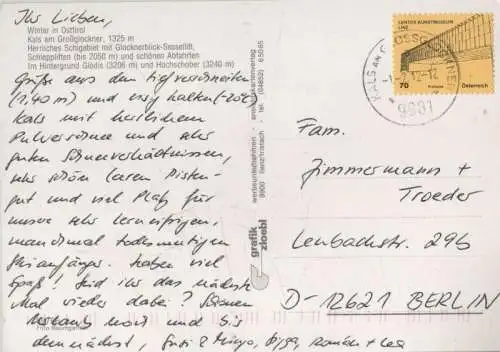 Ihr Lieben,
Winter in Osttirol
Kals am Großglockner, 1325 m
Herrliches Schigebiet mit Glocknerblick-Sessellift,
Schleppliften (bis 2050 m) und schönen Abfahrten
Im Hintergrund Glödis (3206 m) und Hochschober (3240 m)
Grüße aus dem tiefverschneiten
(1,40 m) und eisig kalten (-20°C)
Kals mit herrlichem
Pulverschnee und sehr
guten Schneeverhältnissen,
sehr schön leeren Pisten
gut und viel Platz für
unsere sehr lerneifrigen,
manchmal todesmutigen
Skianfänger. Haben viel
Spaß! Seid ihr das nächste
Mal wieder dabei? Schönen
Urlaub noch und bis
demnächst,
Foto Baumgartner
werbeunternehmen - ansichtskartenverlag
9900 lienz/osttirol tel. (04852) 65065
grafik
zloebl
LENTOS KUNSTMUSEUM
LINZ
70
Österreich
KALS AM GROSSGLOCKNER
9981
Fam.
Zimmermann +
Troeder
Lenbachstr. 29b
D-12621 BERLIN